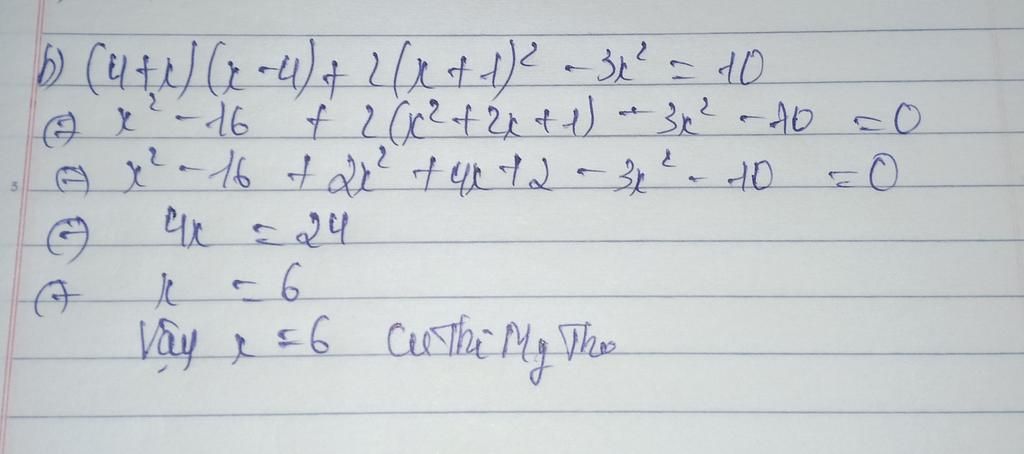 b) (4+x)(x-4)+2(x+1)² -3x² = 10
⇔ x² -16 + 2(x²+2x+1) - 3x² -10 = 0
⇔ x² -16 + 2x² +4x+2 -3x² -10 = 0
⇔ 4x = 24
⇔ x = 6
Vậy x = 6